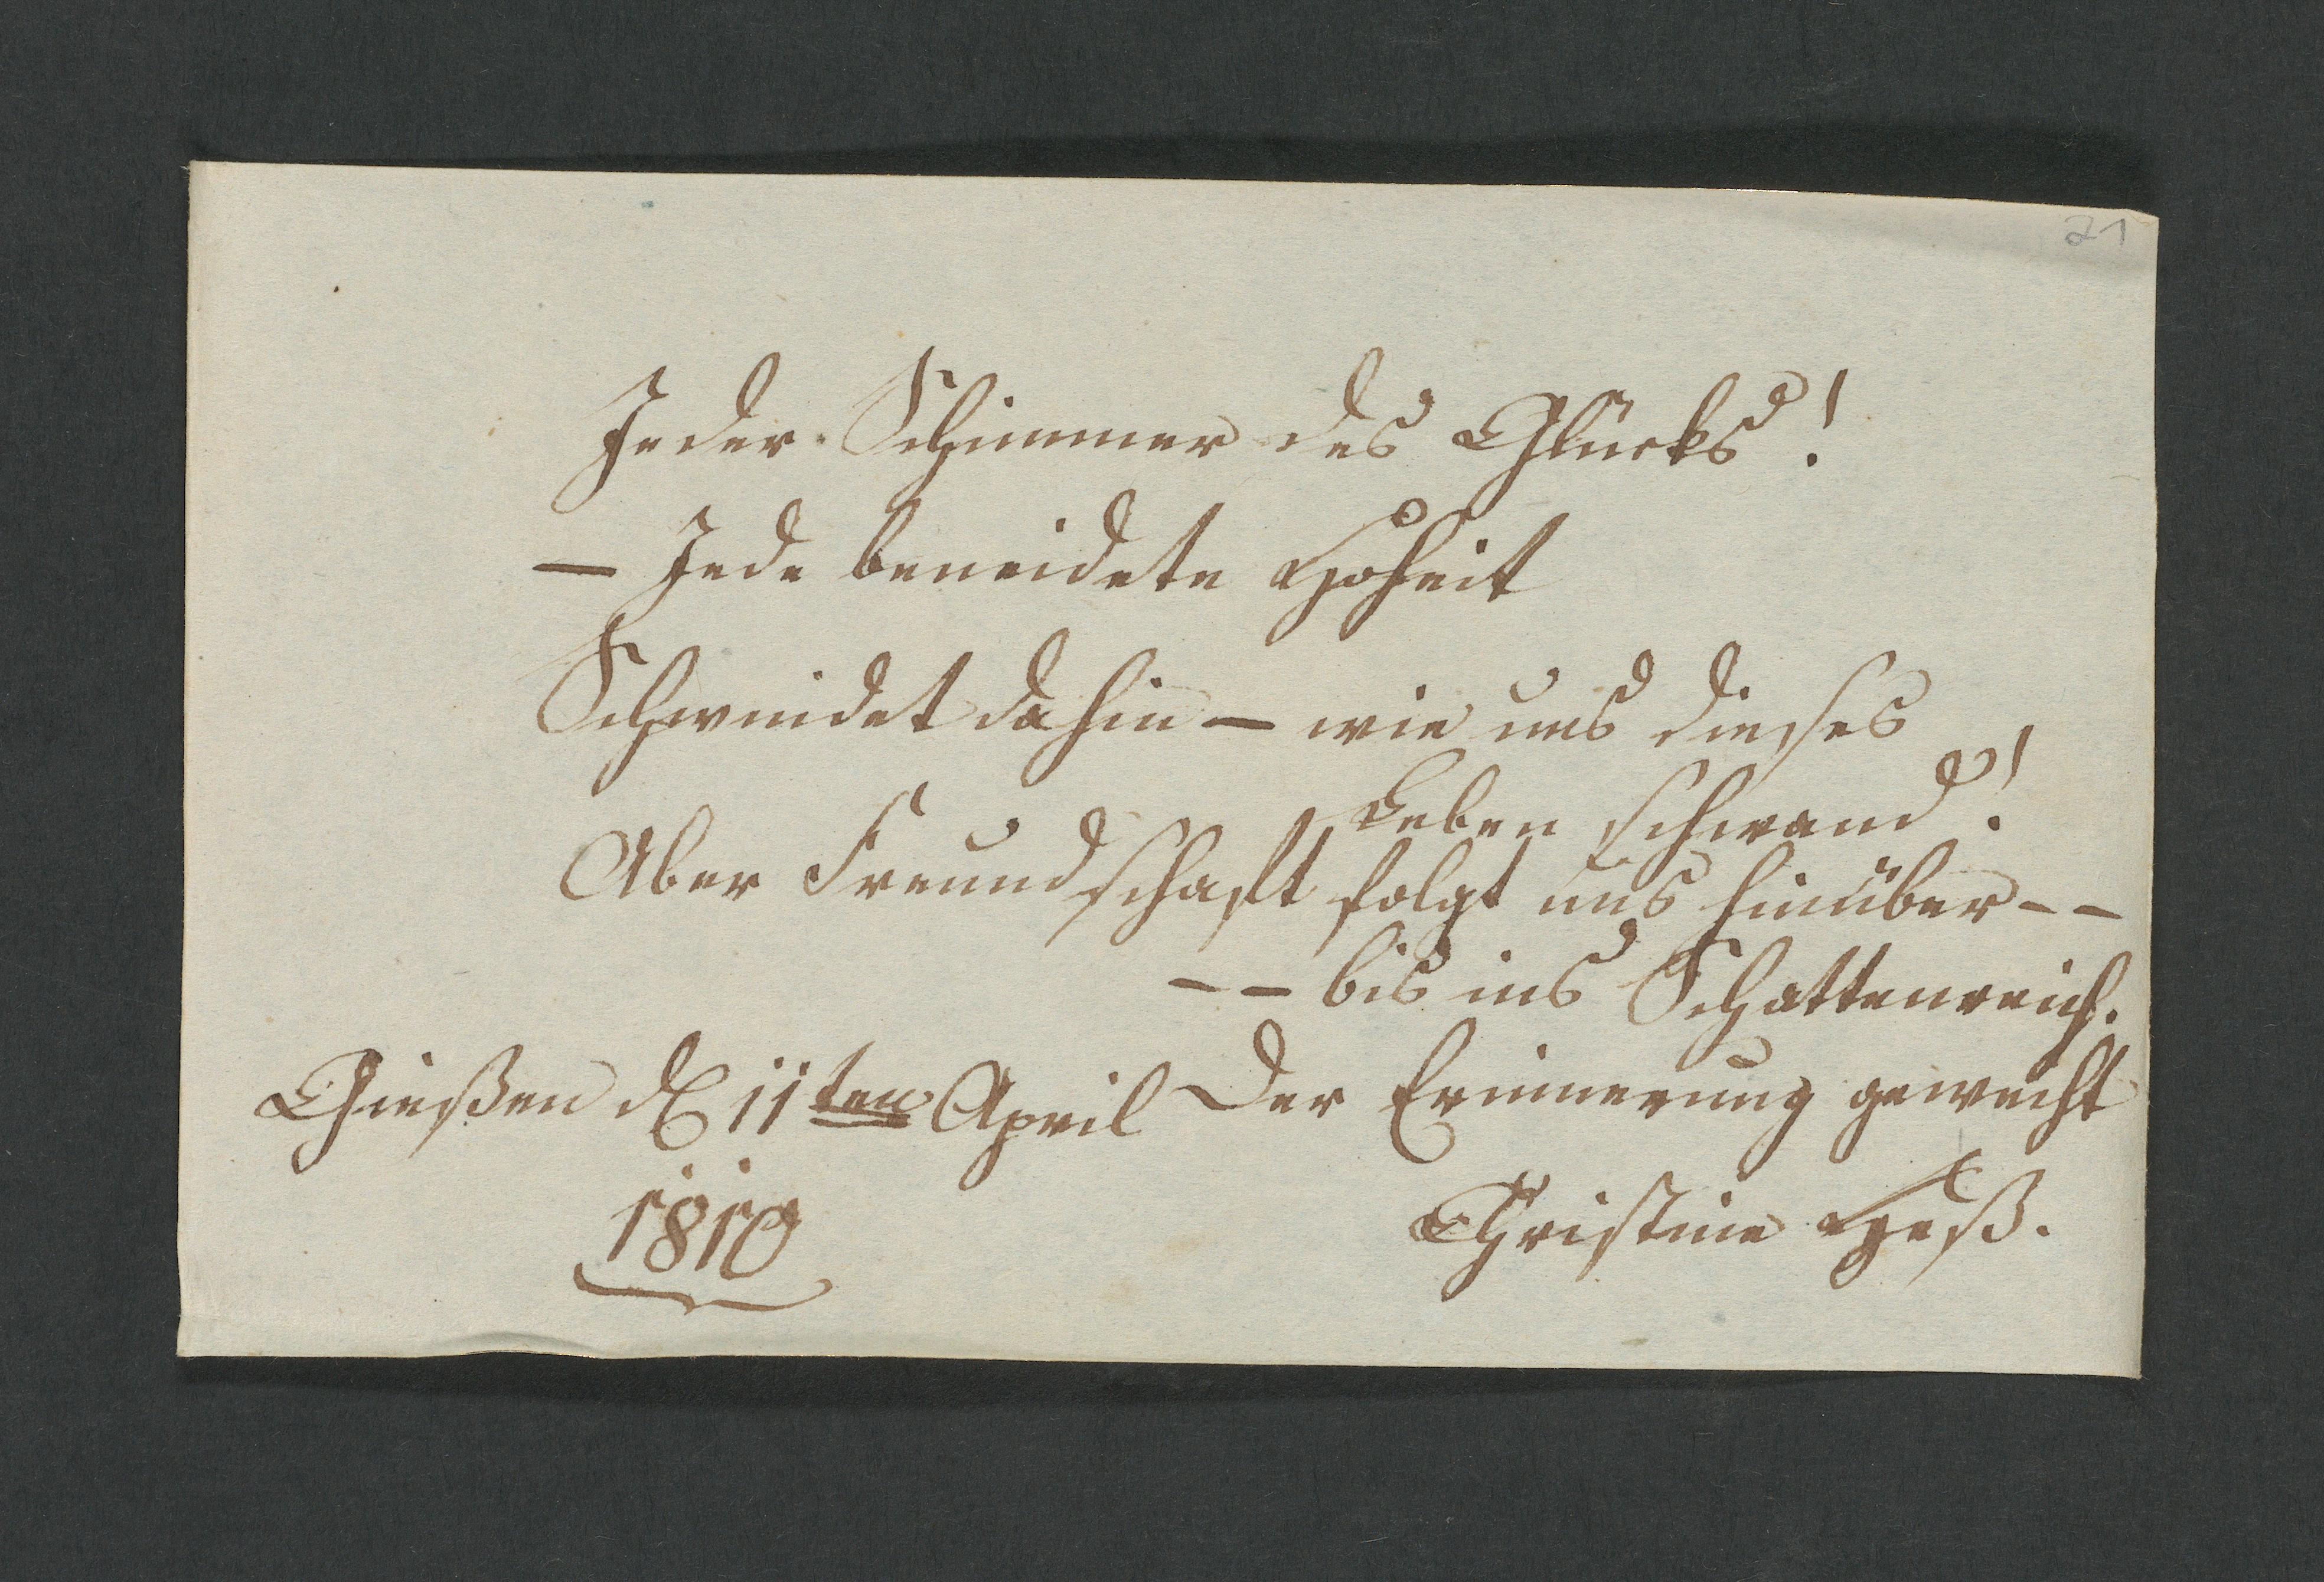 21
Jeder Schimmer des Glücks!
— Jede beneidete Hoheit
Schwindet dahin — wie uns dieses
Leben schwand!
Aber Freundschaft folgt uns hinüber - -
- - bis ins Schattenreich.
Gießen d 11ten April
1810
Der Erinnerung geweiht
Christine Heß.